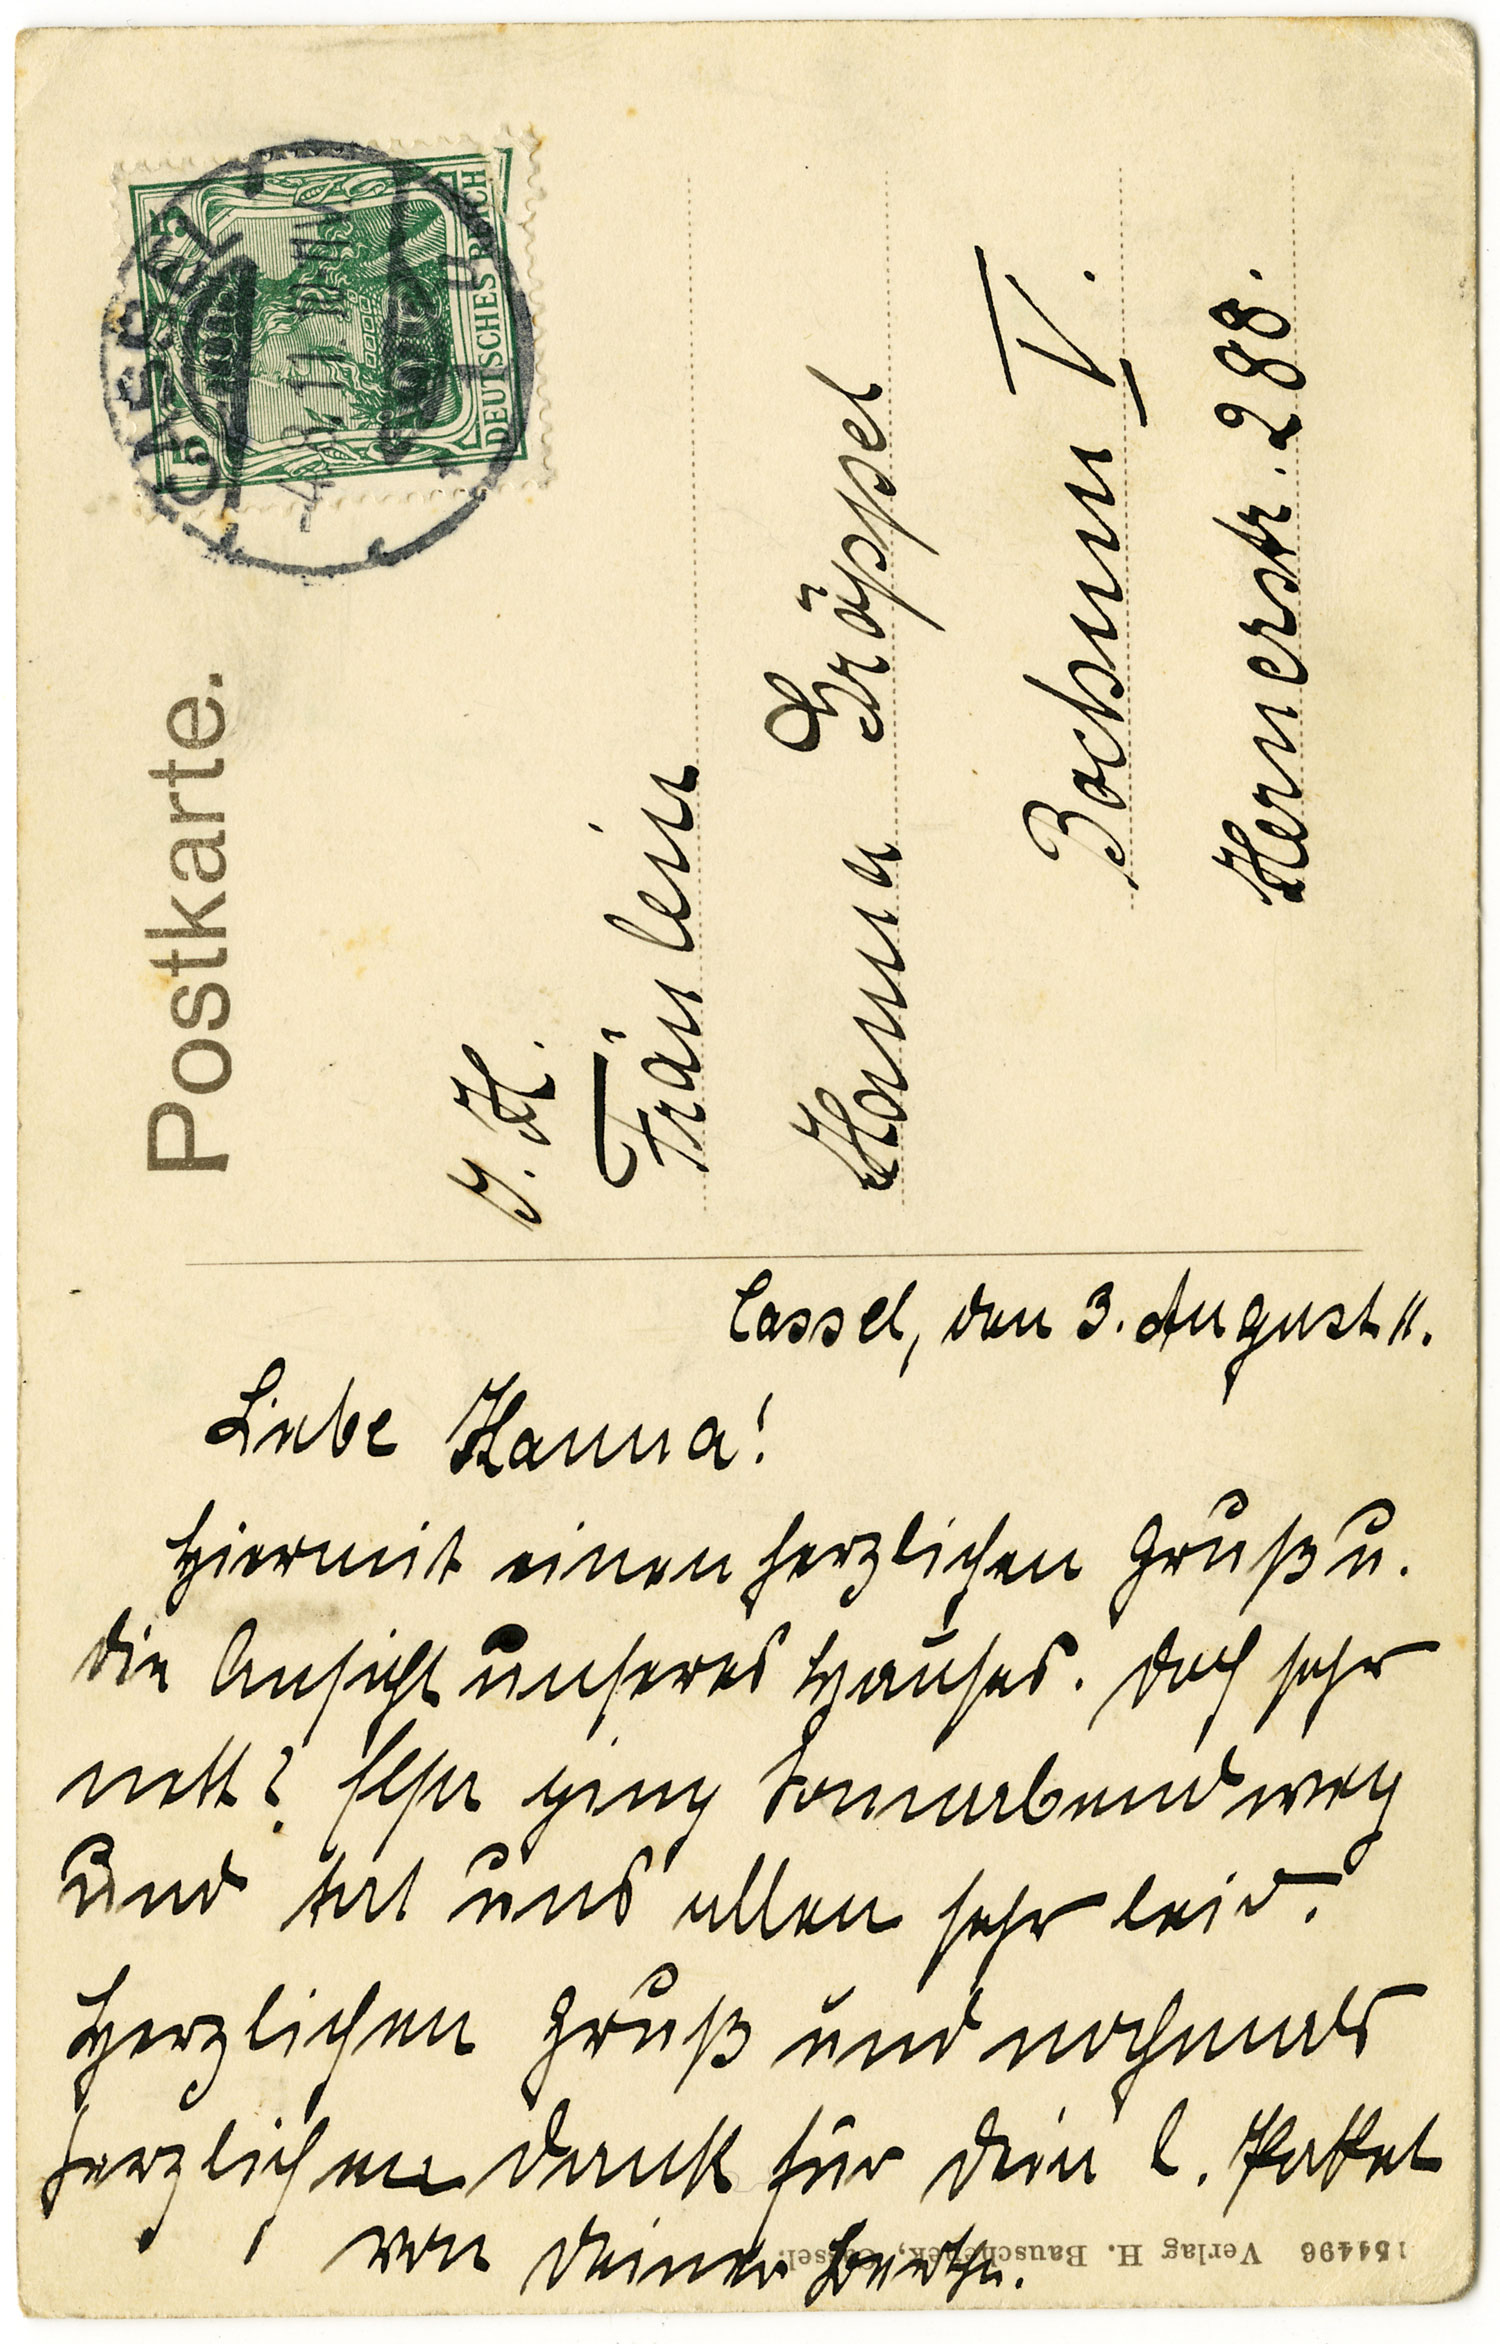 Postkarte.
DEUTSCHES REICH
5 5
CASSEL
1
I. H.
Fräulein
Hanna Gröppel
Bochum V.
Hernerstr. 288.
Cassel, den 3. August 11.
Liebe Hanna!
Hiermit einen herzlichen Gruß u.
die Ansicht unseres Hauses. Doch sehr
nett? Else ging Sonnabend weg
und tut uns allen sehr leid.
Herzlichen Gruß und nochmals
herzlichen Dank für Dein l. Paket
von Deiner
154496 Verlag H. Bauschenek, Cassel.